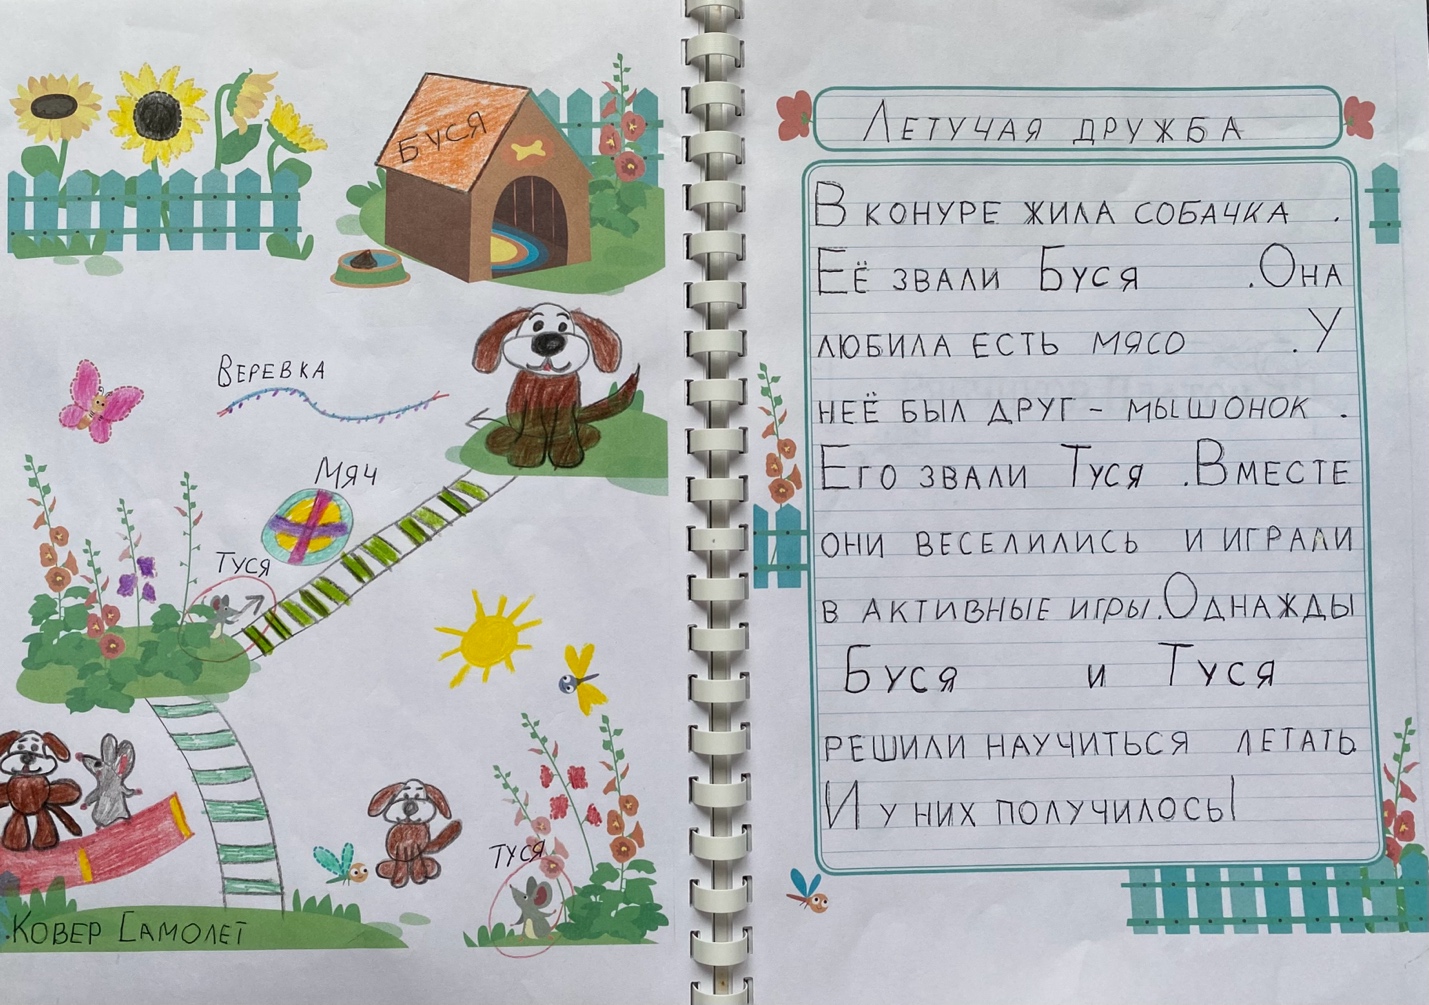 БУСЯ
ВЕРЕВКА
МЯЧ
ТУСЯ
ТУСЯ
КОВЕР САМОЛЕТ
ЛЕТУЧАЯ ДРУЖБА
В КОНУРЕ ЖИЛА СОБАЧКА .
ЕЁ ЗВАЛИ БУСЯ .ОНА
ЛЮБИЛА ЕСТЬ МЯСО .У
НЕЁ БЫЛ ДРУГ - МЫШОНОК .
ЕГО ЗВАЛИ ТУСЯ .ВМЕСТЕ
ОНИ ВЕСЕЛИЛИСЬ И ИГРАЛИ
В АКТИВНЫЕ ИГРЫ.ОДНАЖДЫ
БУСЯ И ТУСЯ
РЕШИЛИ НАУЧИТЬСЯ ЛЕТАТЬ.
И У НИХ ПОЛУЧИЛОСЬ!